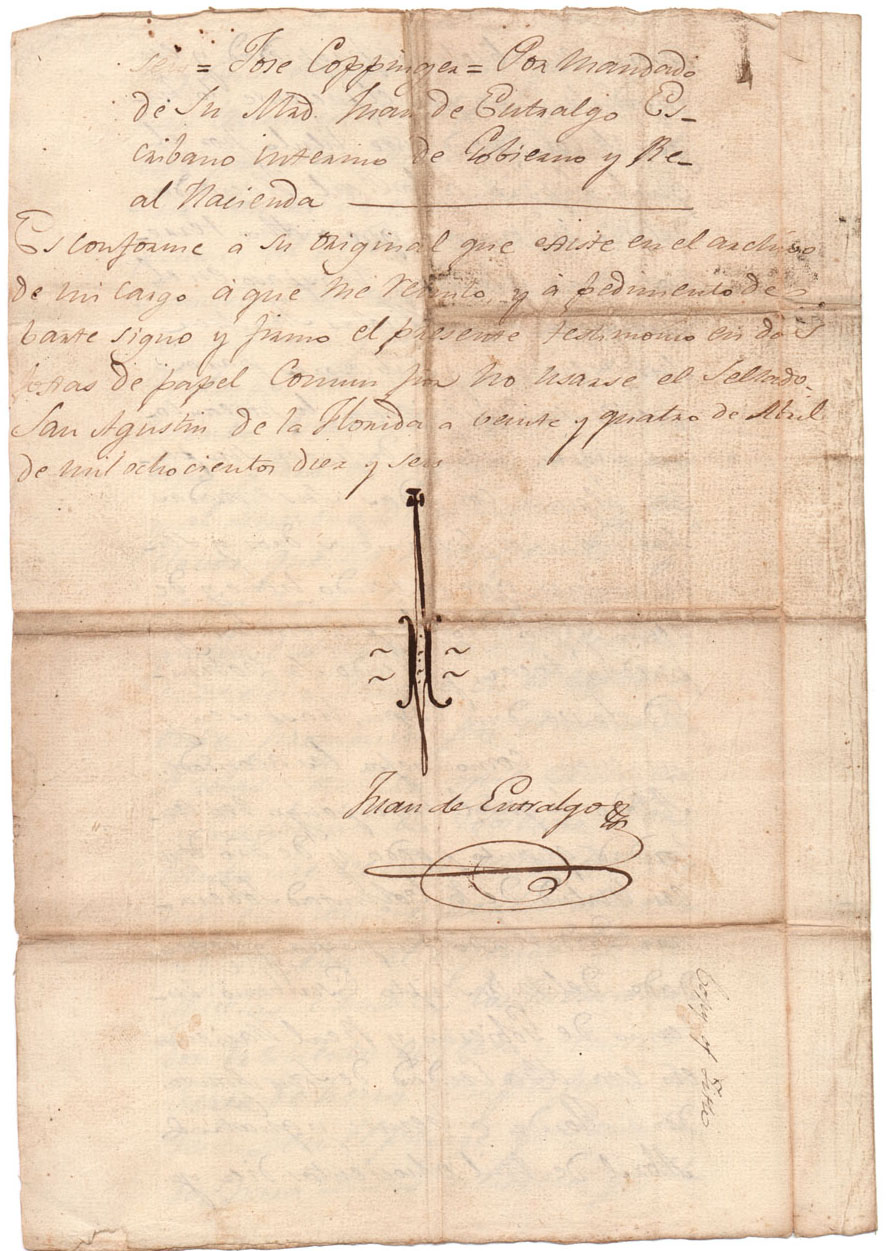 seis = Jose Coppinger = Por mandado
de Su Mrd. Juan de Entralgo Es-
cribano interino de Gobierno y Re-
al Hacienda
Es conforme a su original que existe en el archivo
de mi cargo á que me remito, y á pedimento de
parte signo y firmo el presente testimonio en dos
foxas de papel Comun por no usarse el Sellado.
San Agustin de la Florida a veinte y quatro de Abril
de mil ochocientos diez y seis
Juan de Entralgo
Copy of Title